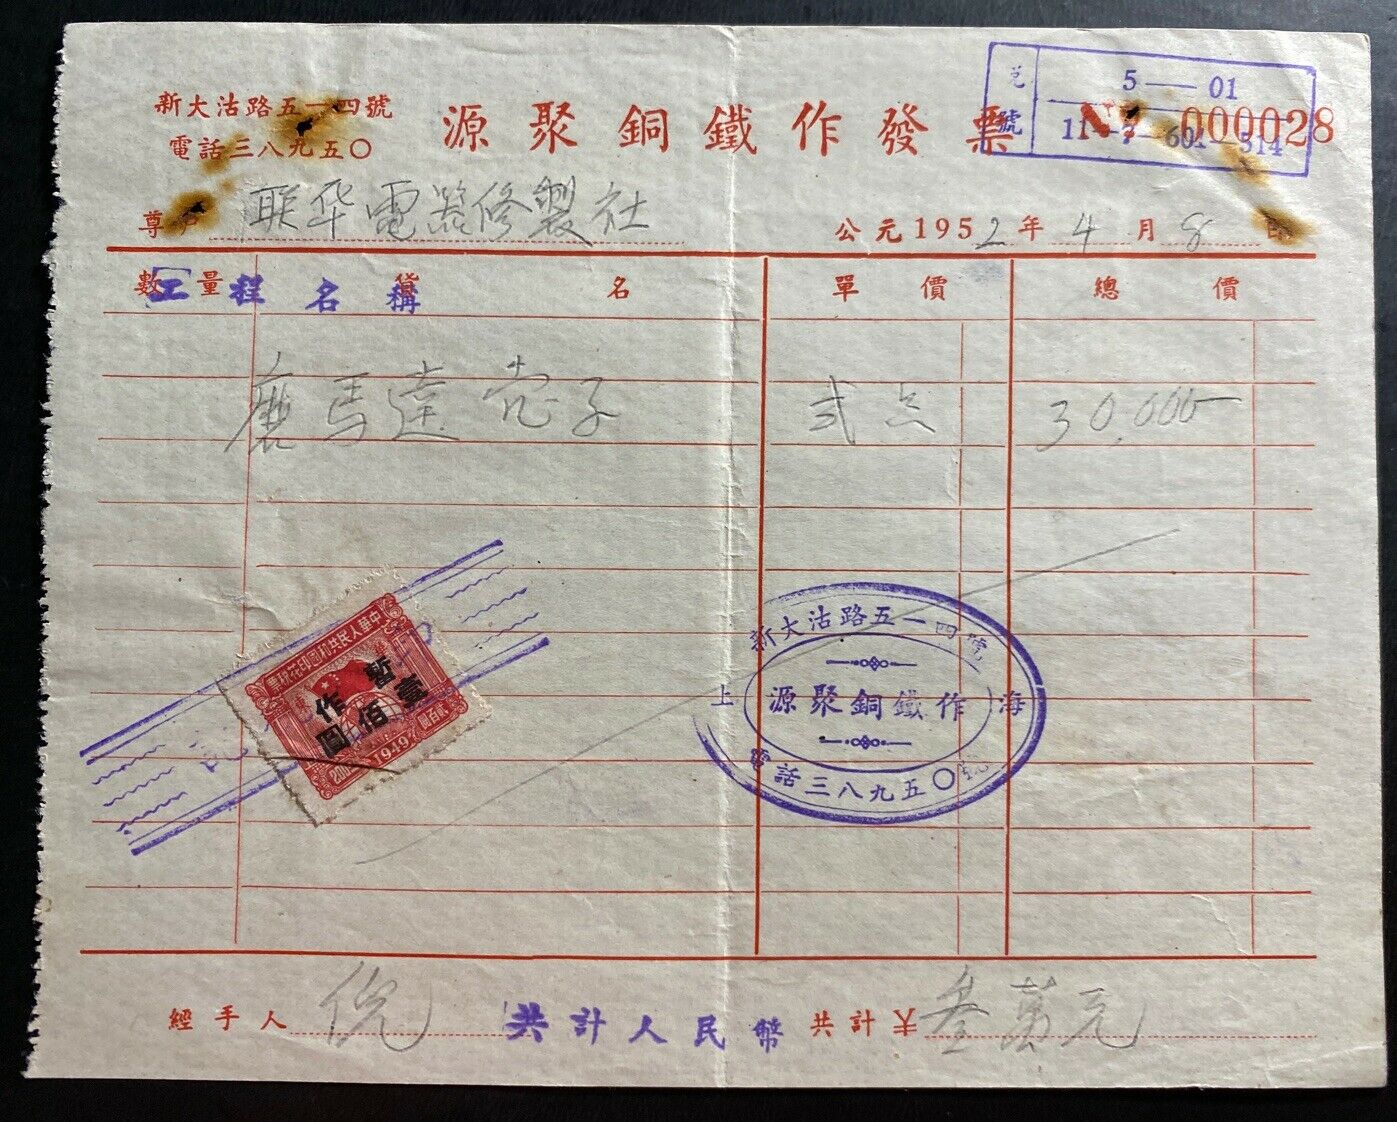 新大沽路五一四號
電話三八九五〇
源聚銅鐵作發票
№ 000028
兑號
5 — 01
11—7—601—514
尊
联华電器修製社
公元1952年4月8日
數量 貨名 單價 總價
工程名稱
鹿馬達壳子 弍只 30,000-
中華人民共和國印花稅票
暫作壹佰圓
貳百圓
200
1949
新大沽路五一四號
上海
源聚銅鐵作
電話三八九五〇號
經手人 倪
共計人民幣
共計¥ 叁萬元